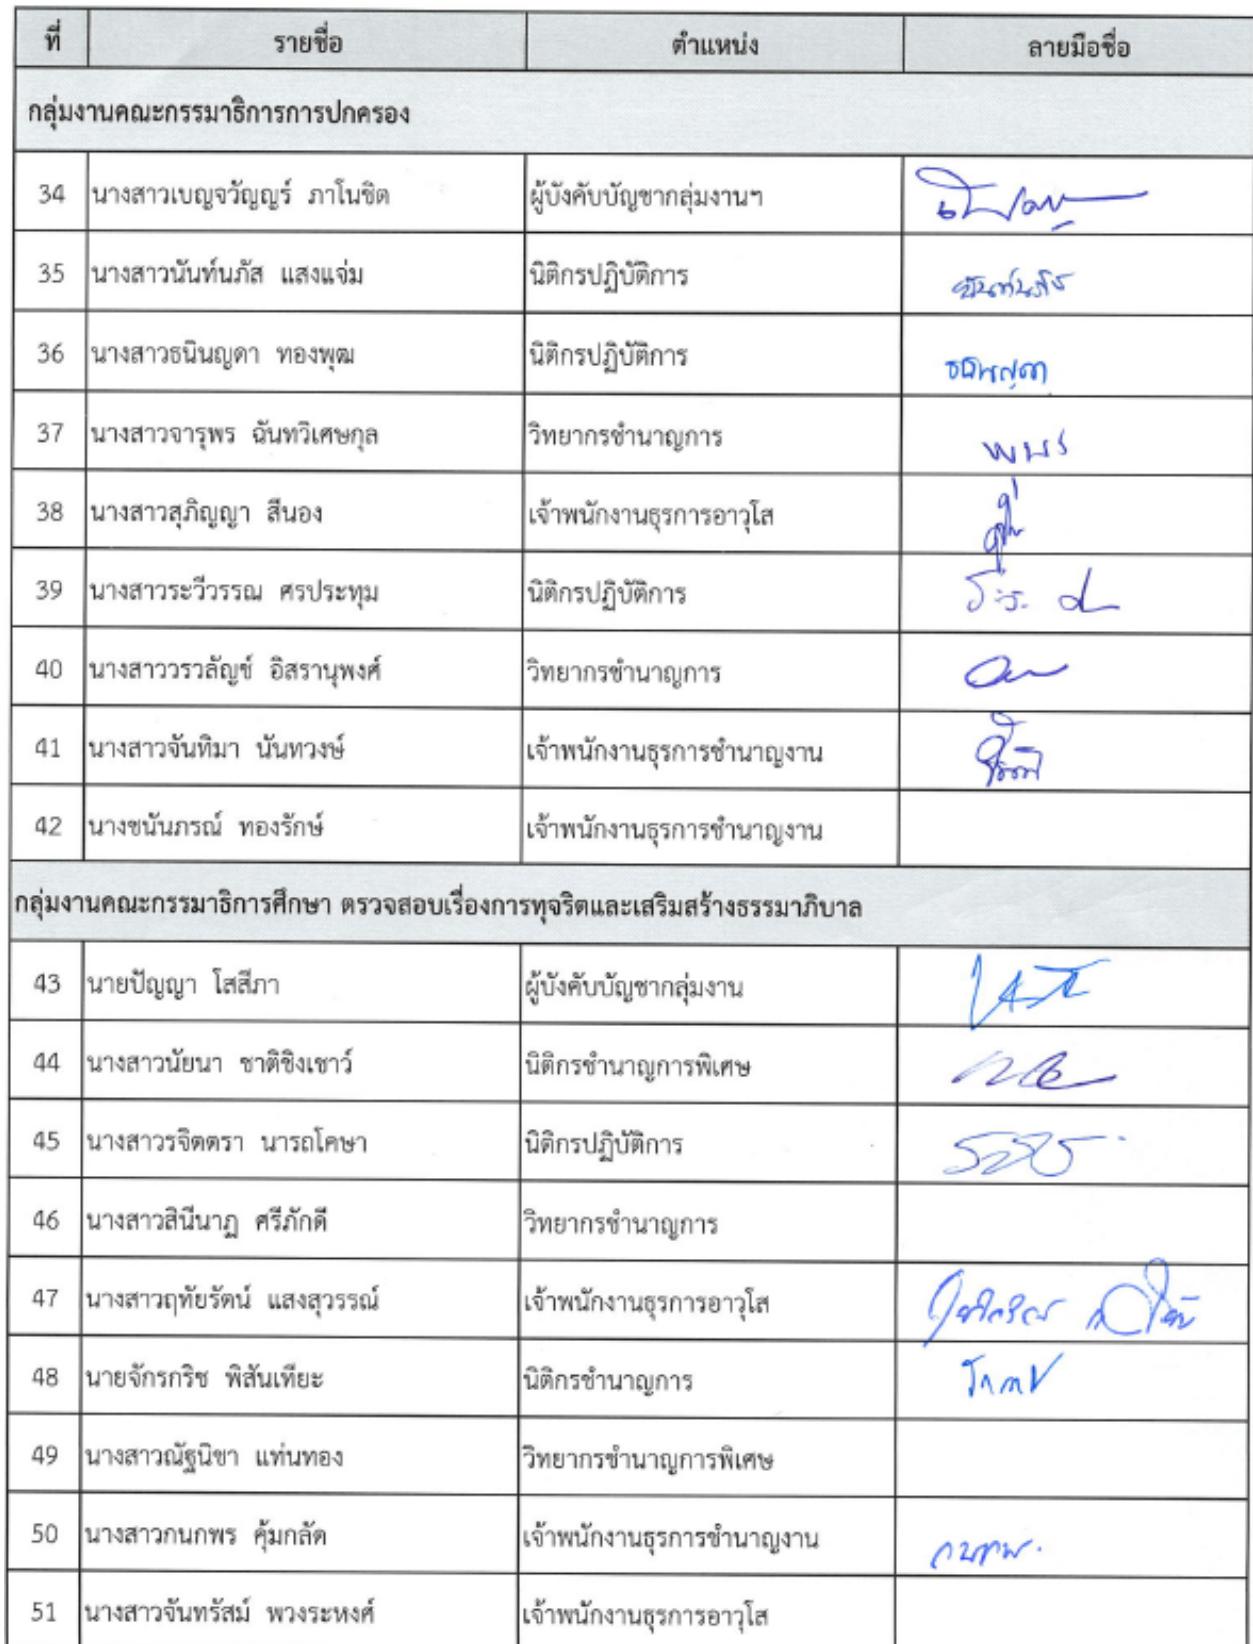 ที่ รายชื่อ ตำแหน่ง ลายมือชื่อ
กลุ่มงานคณะกรรมาธิการการปกครอง
34 นางสาวเบญจวัญญร์ ภาโนชิต ผู้บังคับบัญชากลุ่มงานฯ
35 นางสาวนันท์นภัส แสงแจ่ม นิติกรปฏิบัติการ นันท์นภัส
36 นางสาวธนินญดา ทองพุฒ นิติกรปฏิบัติการ ธนินญดา
37 นางสาวจารุพร ฉันทวิเศษกุล วิทยากรชำนาญการ
38 นางสาวสุภิญญา สีนอง เจ้าพนักงานธุรการอาวุโส
39 นางสาวระวีวรรณ ศรประทุม นิติกรปฏิบัติการ
40 นางสาววรวลัญช์ อิสรานุพงศ์ วิทยากรชำนาญการ
41 นางสาวจันทิมา นันทวงษ์ เจ้าพนักงานธุรการชำนาญงาน
42 นางชนันภรณ์ ทองรักษ์ เจ้าพนักงานธุรการชำนาญงาน
กลุ่มงานคณะกรรมาธิการศึกษา ตรวจสอบเรื่องการทุจริตและเสริมสร้างธรรมาภิบาล
43 นายปัญญา โสสีภา ผู้บังคับบัญชากลุ่มงาน
44 นางสาวนัยนา ชาติชิงเชาว์ นิติกรชำนาญการพิเศษ
45 นางสาวรจิตตรา นารถโคษา นิติกรปฏิบัติการ
46 นางสาวสินีนาฏ ศรีภักดี วิทยากรชำนาญการ
47 นางสาวฤทัยรัตน์ แสงสุวรรณ์ เจ้าพนักงานธุรการอาวุโส
48 นายจักรกริช พิสันเทียะ นิติกรชำนาญการ
49 นางสาวณัฐนิชา แท่นทอง วิทยากรชำนาญการพิเศษ
50 นางสาวกนกพร คุ้มกลัด เจ้าพนักงานธุรการชำนาญงาน กนกพร.
51 นางสาวจันทรัสม์ พวงระหงศ์ เจ้าพนักงานธุรการอาวุโส